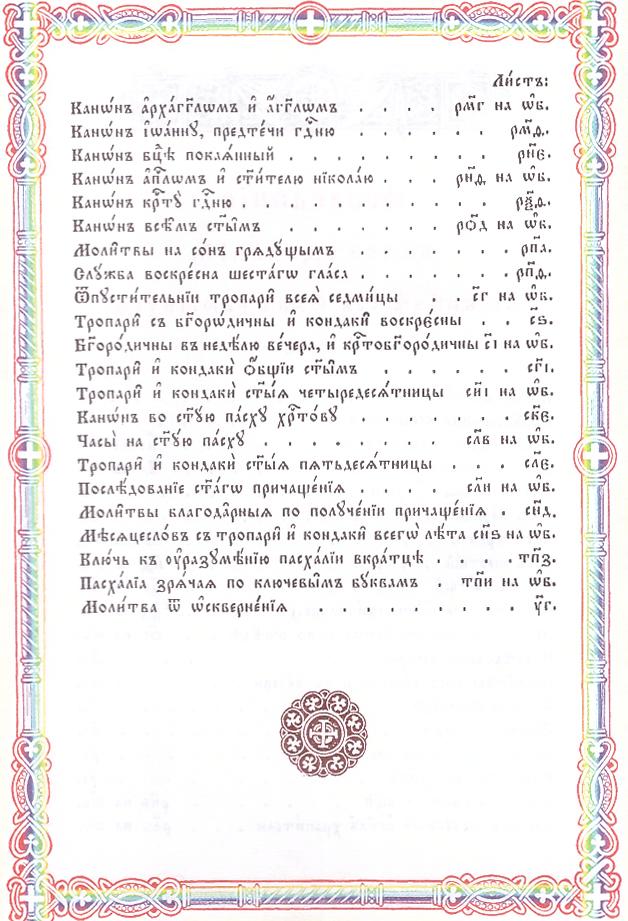 Ли́стъ:
Канѡ́нъ а҆рха́гг҃лѡмъ и҆ а҆́гг҃лѡмъ . . . . рм҃г на ѡ҆б.
Канѡ́нъ і҆ѡа́нну, предте́чи гдⷭ҇ню . . . . . . . рм҃ѳ.
Канѡ́нъ бцⷣѣ покаѧ́нный . . . . . . . . . рн҃е.
Канѡ́нъ а҆пⷭ҇лѡмъ и҆ ст҃и́телю нїкола́ю . . . рн҃ѳ на ѡ҆б.
Канѡ́нъ крⷭ҇ту̀ гдⷭ҇ню . . . . . . . . . . . рѯ҃ѳ.
Канѡ́нъ всѣ̑мъ ст҃ы̑мъ . . . . . . . . ро҃д на ѡ҆б.
Моли̑твы на со́нъ грѧду́щымъ . . . . . . . . рп҃а.
Слу́жба воскре́сна шеста́гѡ гла́са . . . . . . . рп҃ѳ.
Ѿпусти́тельнїи тропари̑ всеѧ̀ седми́цы . . с҃г на ѡ҆б.
Тропари̑ съ бг҃оро́дичны и҆ кондаки̑ воскрє́сны . . с҃ѕ.
Бг҃оро́дичны въ недѣ́лю ве́чера, и҆ крⷭ҇тобг҃оро́дичны с҃і на ѡ҆б.
Тропари̑ и҆ кондаки̑ ѻ҆́бщїи ст҃ы̑мъ . . . . . . сг҃і.
Тропари̑ и҆ кондаки̑ ст҃ы́ѧ четыредесѧ́тницы си҃і на ѡ҆б.
Канѡ́нъ во ст҃у́ю па́сху хрⷭ҇то́ву . . . . . . . ск҃е.
Часы̀ на ст҃у́ю па́сху . . . . . . . . сл҃в на ѡ҆б.
Тропари̑ и҆ кондаки̑ ст҃ы́ѧ пѧтьдесѧ́тницы . . . сл҃е.
Послѣ́дованїе ст҃а́гѡ причаще́нїѧ . . . . сл҃и на ѡ҆б.
Моли̑твы благода̑рныѧ по полꙋче́нїи причаще́нїѧ . сн҃д.
Мѣсѧцесло́въ съ тропари̑ и҆ кондаки̑ всегѡ̀ лѣ́та сн҃ѕ на ѡ҆б.
Клю́чь къ ᲂу҆разумѣ́нїю пасха́лїи вкра́тцѣ . . . . тп҃з.
Пасха́лїа зрѧ́чаѧ по ключевы̑мъ бу́квамъ . тп҃и на ѡ҆б.
Моли́тва ѿ ѡ҆скверне́нїѧ . . . . . . . . . у҃г.